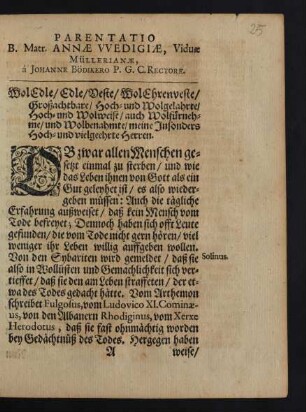 25
PARENTATIO
B. Matr. ANNÆ WEDIGIÆ, Viduæ
MÜLLERIANÆ,
à JOHANNE BÖDIKERO P. G. C. RECTORE.
WolEdle/ Edle/ Veste/ WolEhrenveste/
Großachtbare/ Hoch- und Wolgelahrte/
Hoch- und Wolweise/ auch Wolfürneh-
me/ und Wolbenahmte/ meine Insonders
Hoch- und vielgeehrte Herren.
OB zwar allen Menschen ge-
setzt einmal zu sterben/ und wie
das Leben ihnen von Gott als ein
Gut geleyhet ist/ es also wieder-
geben müssen: Auch die tägliche
Erfahrung außweiset/ daß kein Mensch vom
Tode befreyet; Dennoch haben sich offt Leute
gefunden/ die vom Tode nicht gern hören/ viel
weniger ihr Leben willig auffgeben wollen.
Von den Sybariten wird gemeldet/ daß sie
Solinus.
also in Wollüsten und Gemachligkeit sich ver-
tieffet/ daß sie den am Leben straffeten/ der et-
wa des Todes gedacht hätte. Vom Arthemon
schreibet Fulgosius, vom Ludovico XI. Cominæ-
us, von den Albanern Rhodiginus, vom Xerxe
Herodotus, daß sie fast ohnmächtig worden
bey Gedächtnüß des Todes. Hergegen haben
A weise/